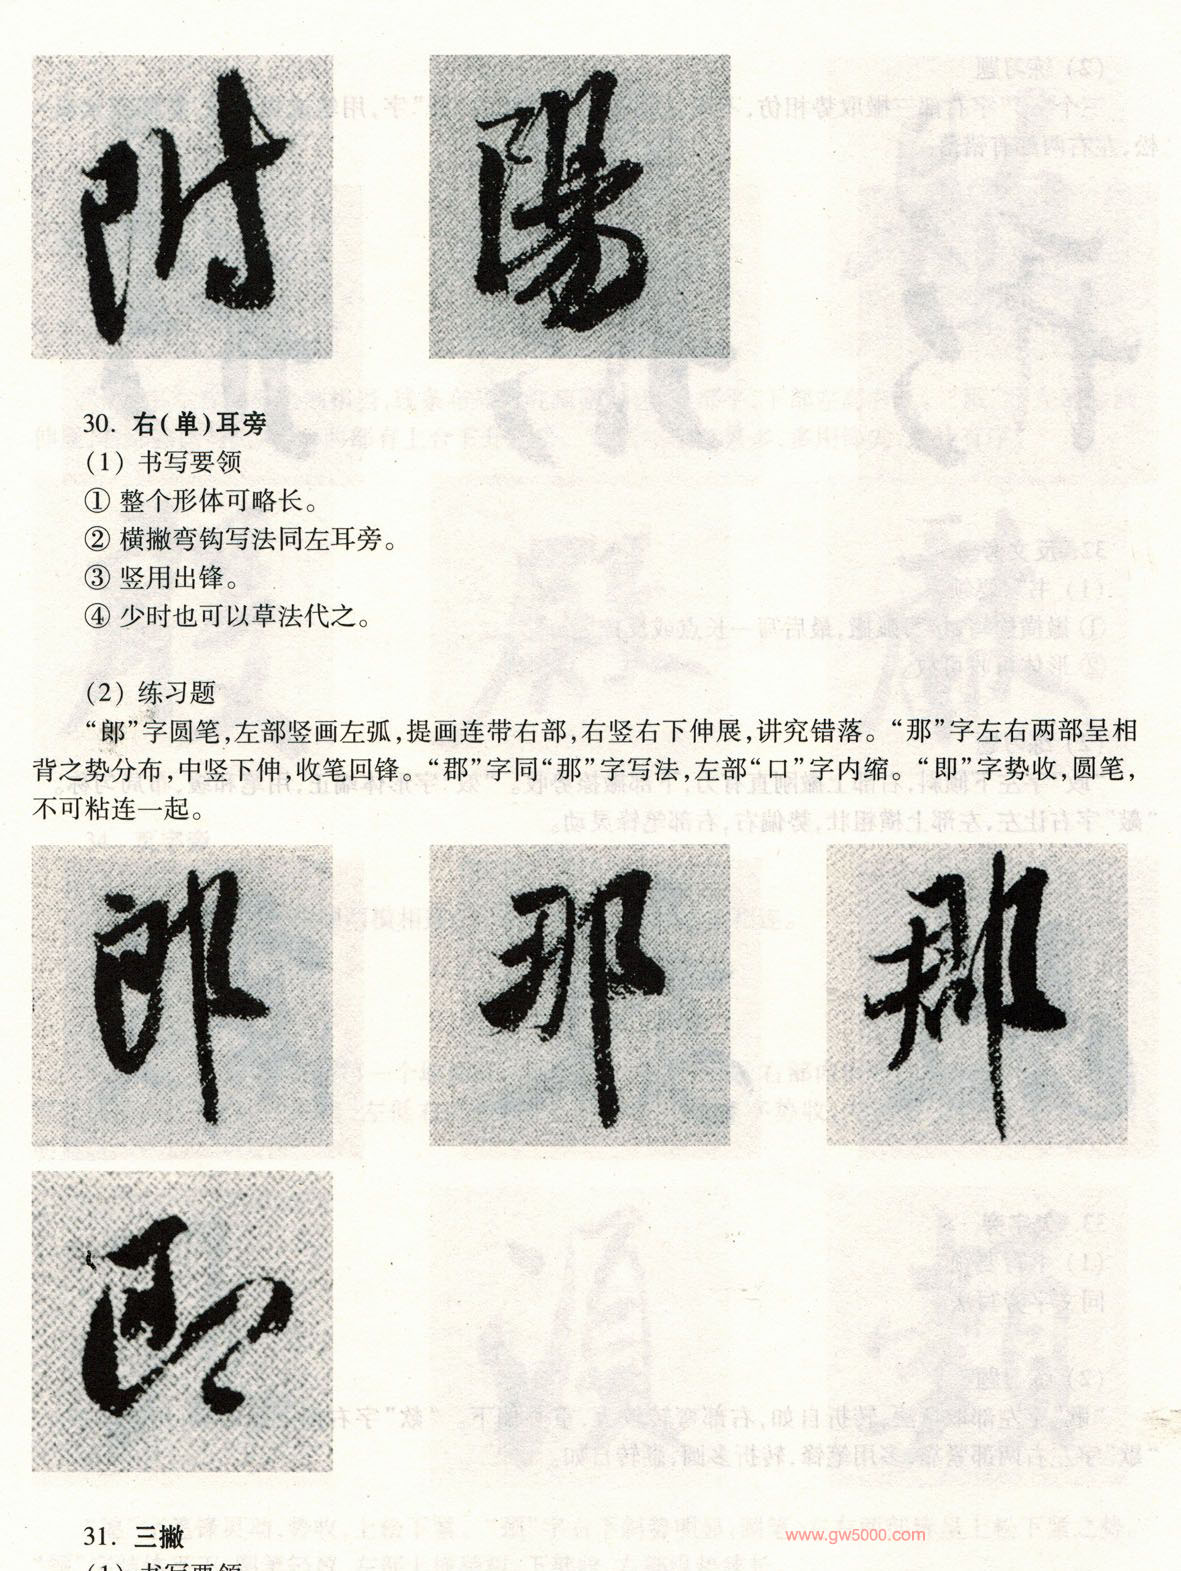 附 陽
30. 右(单)耳旁
(1) 书写要领
① 整个形体可略长。
② 横撇弯钩写法同左耳旁。
③ 竖用出锋。
④ 少时也可以草法代之。
(2) 练习题
“郎”字圆笔,左部竖画左弧,提画连带右部,右竖右下伸展,讲究错落。“那”字左右两部呈相
背之势分布,中竖下伸,收笔回锋。“郡”字同“那”字写法,左部“口”字内缩。“即”字势收,圆笔,
不可粘连一起。
郎 那 郡
即
31. 三撇
(1) 书写要领
www.gw5000.com